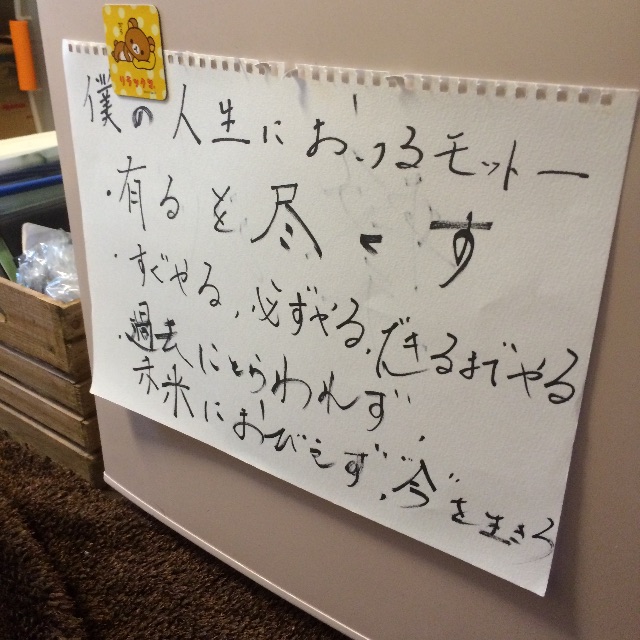 僕の人生におけるモットー
・有ると尽くす
・すぐやる、必ずやる、できるまでやる
・過去にとらわれず
未来におびえず、今を生きろ